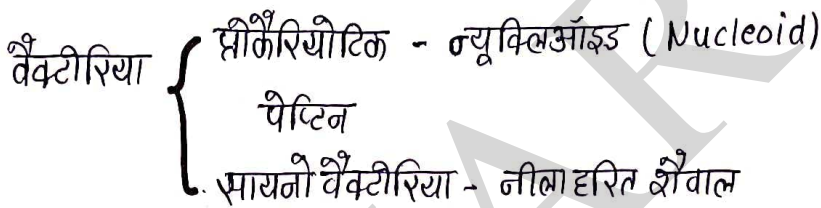 बैक्टीरिया
प्रोकैरियोटिक - न्यूक्लिऑइड (Nucleoid)
पेप्टिन
सायनो बैक्टीरिया - नीला हरित शैवाल